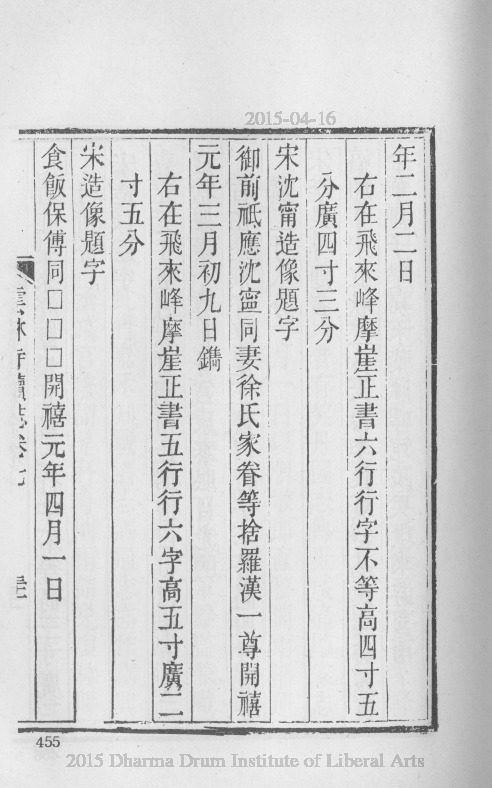 2015-04-16
年二月二日
右在飛來峰摩崖正書六行行字不等高四寸五
分廣四寸三分
宋沈甯造像題字
御前祗應沈寍同妻徐氏家眷等捨羅漢一尊開禧
元年三月初九日鐫
右在飛來峰摩崖正書五行行六字高五寸廣二
寸五分
宋造像題字
食飯保傅同囗囗囗開禧元年四月一日
雲林寺續誌卷七
455
2015 Dharma Drum Institute of Liberal Arts